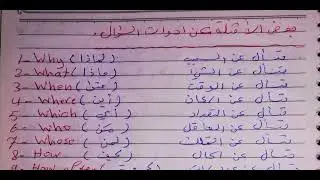 بعض الأمثلة عن ادوات السؤال.
1- Why (لماذا) نسأل عن السبب
2- What (ماذا) نسأل عن
3- When (متى) نسأل عن الوقت
4- Where (أين) نسأل عن المكان
5- Which (أي) نسأل عن
6- Who (من) نسأل عن العاقل
7- Whose (لمن) نسأل عن
8- How (كيف) نسأل عن الحال